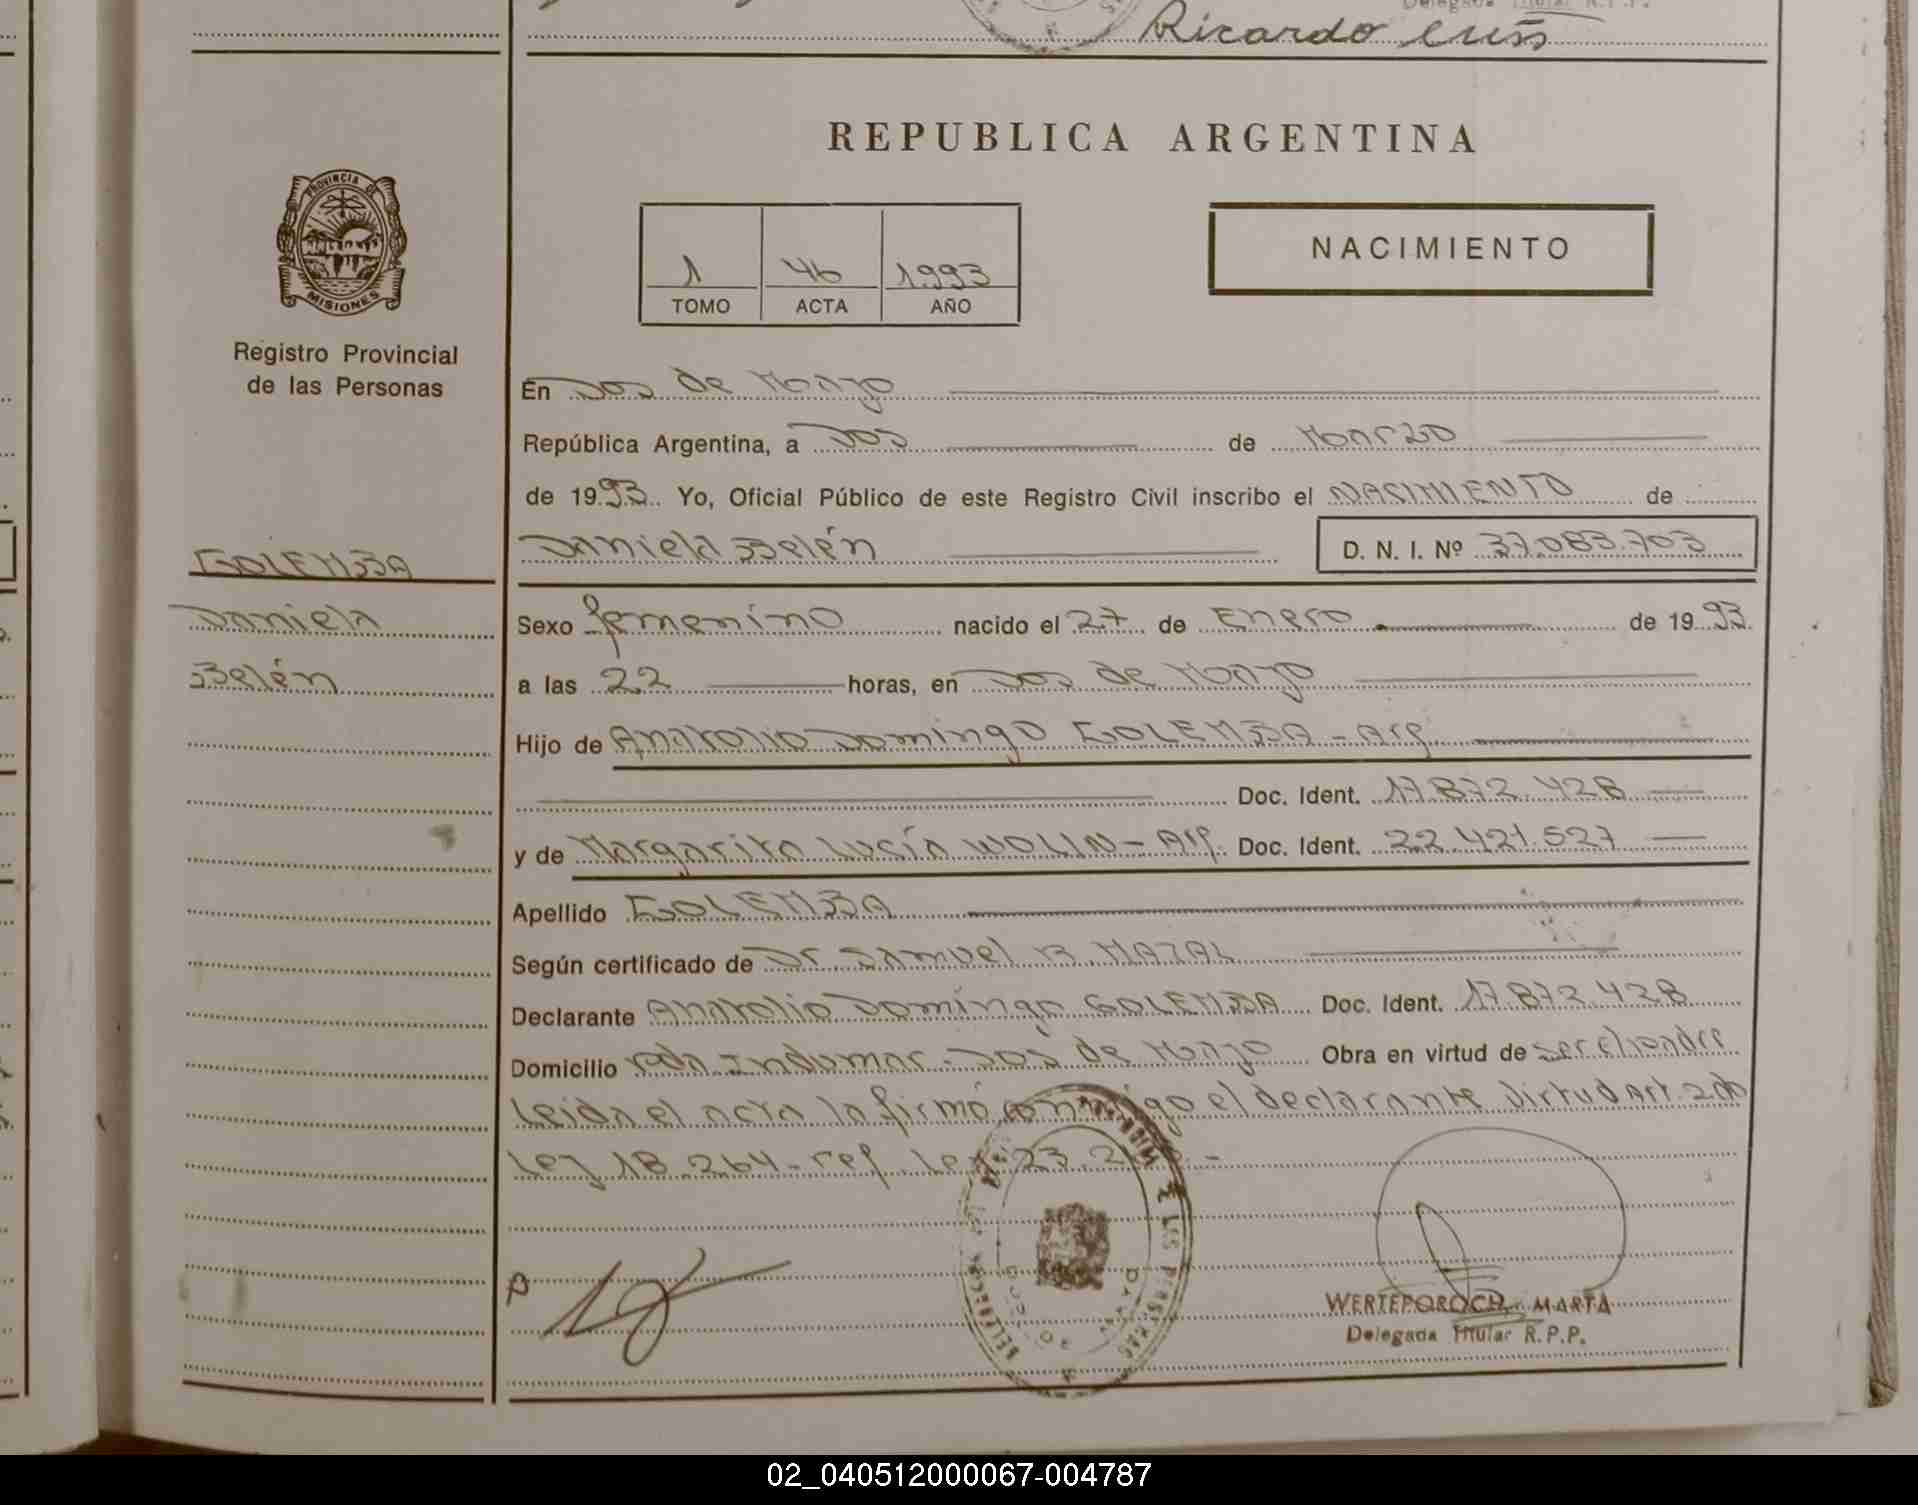 Ricardo Luis
REPUBLICA ARGENTINA
PROVINCIA DE
MISIONES
Registro Provincial
de las Personas
1 46 1993
TOMO ACTA AÑO
NACIMIENTO
En Dos de Mayo
República Argentina, a Dos de Marzo
de 1993 Yo, Oficial Público de este Registro Civil inscribo el NACIMIENTO de
GOLEMBA
Daniela Belén D. N. I. Nº 37.083.703
Daniela
Belén
Sexo femenino nacido el 27 de Enero de 1993.
a las 22 horas, en Dos de Mayo
Hijo de Anatolio Domingo GOLEMBA - Arg.
Doc. Ident. 17.872.428
y de Margarita Lucía WOLIN - Arg. Doc. Ident. 22.421.527
Apellido GOLEMBA
Según certificado de Dr. Samuel B. MAZAL
Declarante Anatolio Domingo GOLEMBA Doc. Ident. 17.872.428
Domicilio Pda. Indumar - Dos de Mayo Obra en virtud de ser el padre
Leida el acta la firmó conmigo el declarante virtud Art. 2do
Ley 18.264 - ref. Ley 23.2
WERTEPOROCH, MARTA
Delegada Titular R.P.P.
02_040512000067-004787